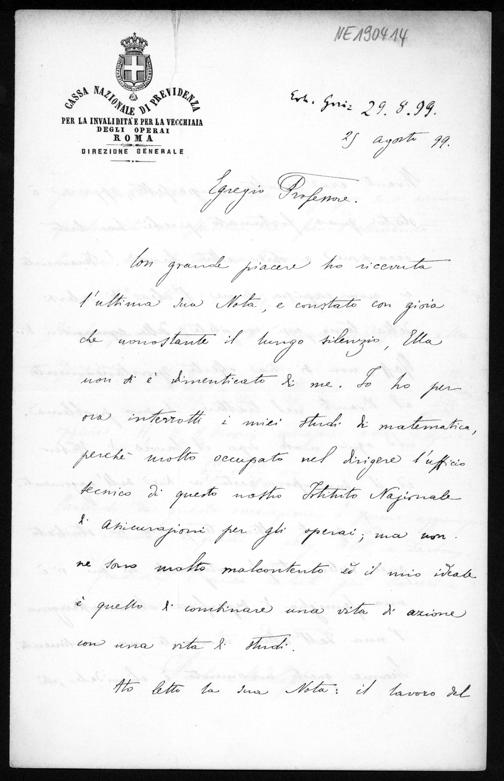 NE190414
CASSA NAZIONALE DI PREVIDENZA
PER LA INVALIDITÀ E PER LA VECCHIAIA
DEGLI OPERAI
ROMA
DIREZIONE GENERALE
29.8.99.
25 agosto 99.
Egregio Professore.
Con grande piacere ho ricevuta
l'ultima sua Nota, e constato con gioia
che nonostante il lungo silenzio, Ella
non si è dimenticato di me. Io ho per
ora interrotti i miei studi di matematica,
perchè molto occupato nel dirigere l'ufficio
tecnico di questo nostro Istituto Nazionale
di assicurazioni per gli operai; ma non
ne sono molto malcontento ed il mio ideale
è quello di combinare una vita di azione
con una vita di studi.
Ho letto la sua Nota: il lavoro del